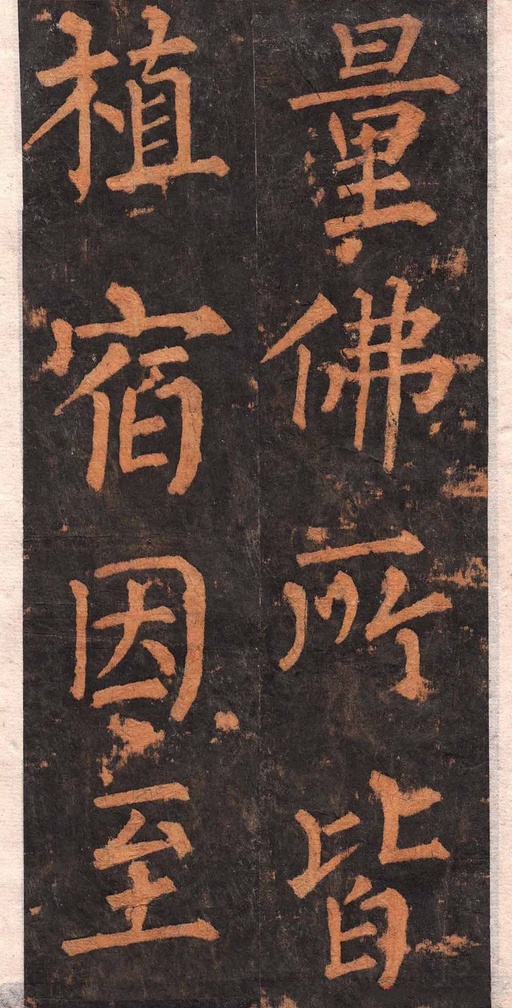 量佛所皆
植宿因至